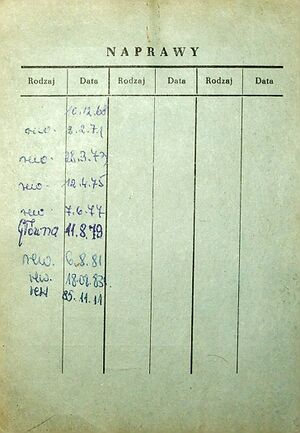 NAPRAWY
Rodzaj Data Rodzaj Data Rodzaj Data
10.12.68
rew. 8.2.71
rew. 28.3.73
rew. 12.4.75
rew. 7.6.77
Główna 11.8.79
rew. 6.8.81
rew. 18.02.83
rew 85.11.11